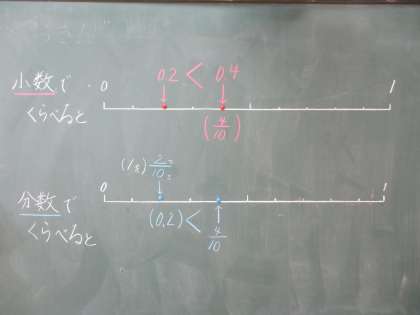 小数で
くらべると
0.2 < 0.4
0 1
(4/10)
分数で
くらべると
2/10
0 1
(0.2) <
4/10